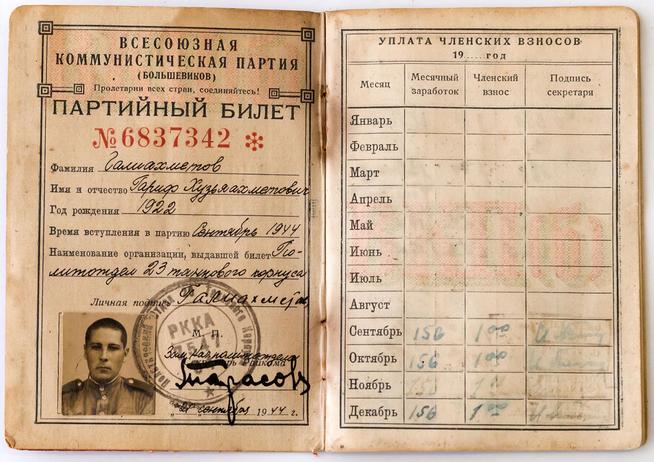 ВСЕСОЮЗНАЯ
КОММУНИСТИЧЕСКАЯ ПАРТИЯ
(БОЛЬШЕВИКОВ)
Пролетарии всех стран, соединяйтесь!
ПАРТИЙНЫЙ БИЛЕТ
№6837342 *
Фамилия Галиахметов
Имя и отчество Гариф Хузьяахметович
Год рождения 1922
Время вступления в партию Сентябрь 1944
Наименование организации, выдавшей билет По-
литотдел 23 танкового корпуса
Личная подпись Галиахметов
РККА
М. П.
Зам. нач. политотдела
Тарасов
сентябрь 1944 г.
УПЛАТА ЧЛЕНСКИХ ВЗНОСОВ
19.... год
Месяц Месячный заработок Членский взнос Подпись секретаря
Январь
Февраль
Март
Апрель
Май
Июнь
Июль
Август
Сентябрь 156 1 00
Октябрь 156 1 00
Ноябрь
Декабрь 156 1 00